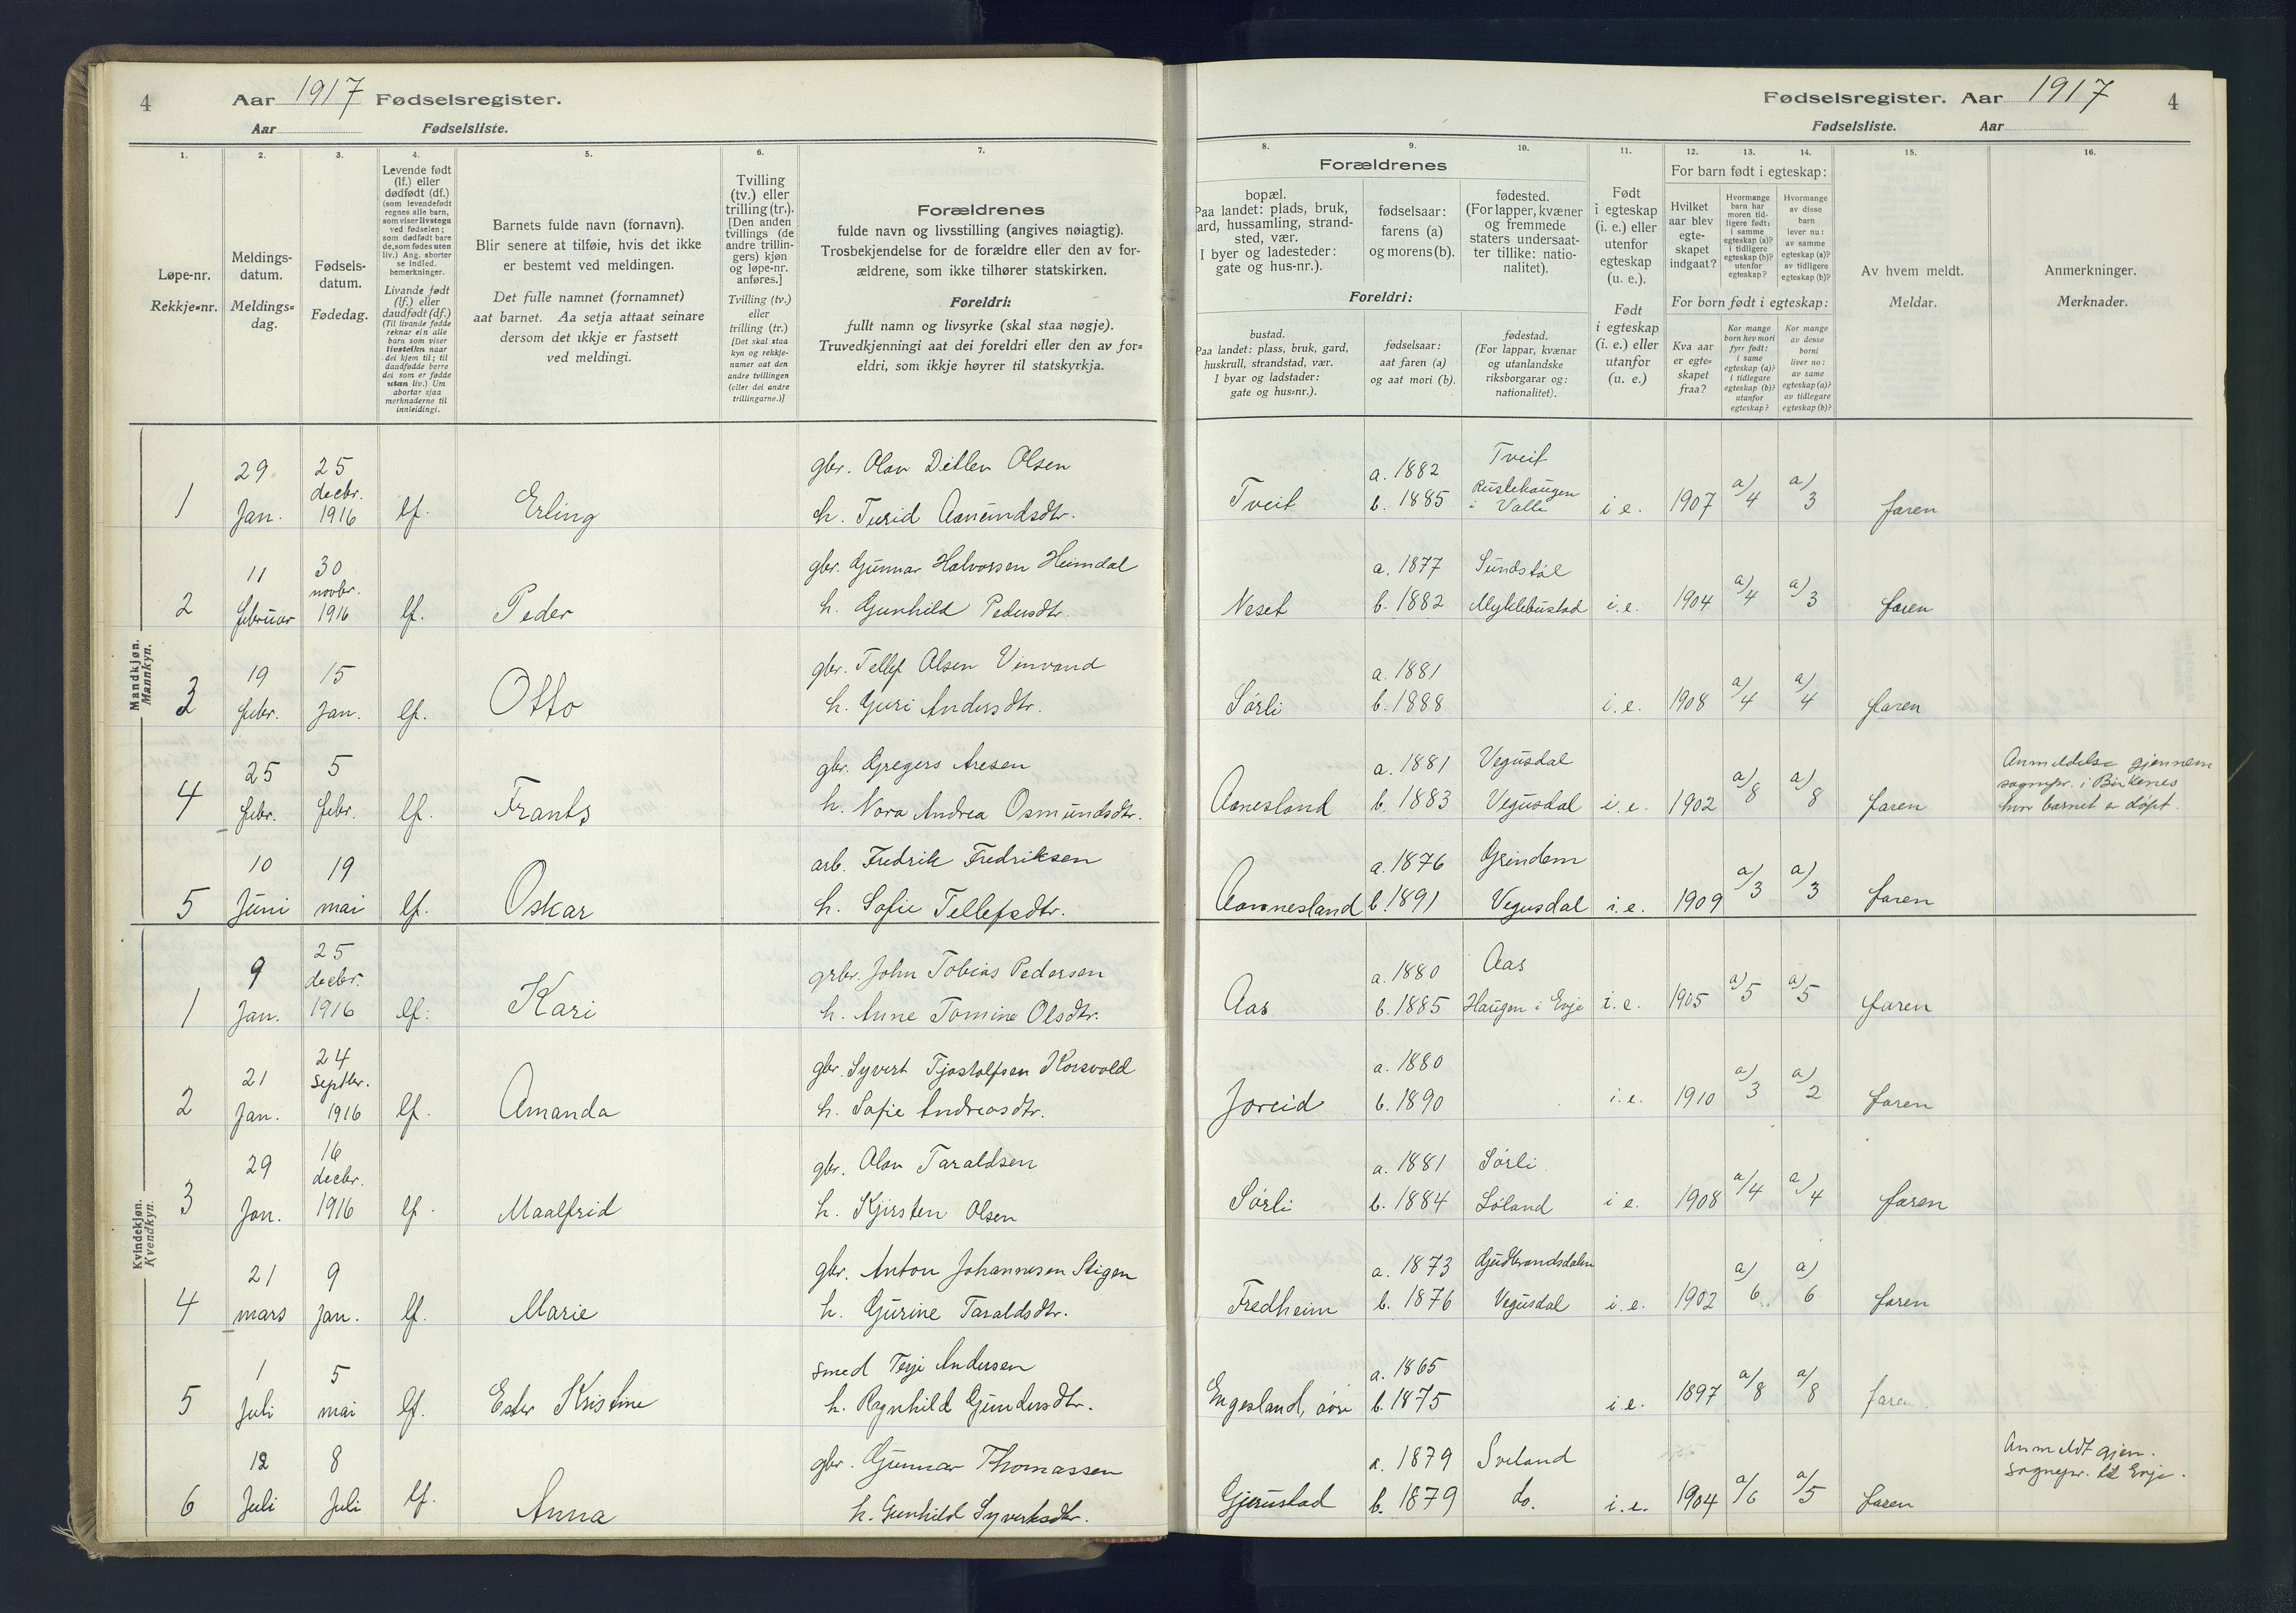 4
Aar 1917 Fødselsregister.
Aar Fødselsliste.
1.
Løpe-nr.
Rekkje-nr.
2.
Meldings-
datum.
Meldings-
dag.
3.
Fødsels-
datum.
Fødedag.
4.
Levende født
(lf.) eller
dødfødt (df.)
(som levendefødt
regnes alle barn,
som viser livstegn
ved fødselen;
som dødfødt bare
de, som fødes uten
liv.) Ang. aborter
se indled.
bemerkninger.
Livande født
(lf.) eller
daudfødt (df.)
(Til livande fødde
reknar ein alle
barn som viser
livsteikn naar
dei kjem til; til
daudfødde berre
dei som er fødde
utan liv.) Um
abortar sjaa
merknaderne til
innleidingi.
5.
Barnets fulde navn (fornavn).
Blir senere at tilføie, hvis det ikke
er bestemt ved meldingen.
Det fulle namnet (fornamnet)
aat barnet. Aa setja attaat seinare
dersom det ikkje er fastsett
ved meldingi.
6.
Tvilling
(tv.) eller
trilling (tr.).
[Den anden
tvillings (de
andre trillin-
gers) kjøn
og løpe-nr.
anføres.]
Tvilling (tv.)
eller
trilling (tr.)
[Det skal staa
kyn og rekkje-
numer aat den
andre tvillingen
(eller dei andre
trillingarne.)]
7.
Forældrenes
fulde navn og livsstilling (angives nøiagtig).
Trosbekjendelse for de forældre eller den av for-
ældrene, som ikke tilhører statskirken.
Foreldri:
fullt namn og livsyrke (skal staa nøgje).
Truvedkjenningi aat dei foreldri eller den av for-
eldri, som ikkje høyrer til statskyrkja.
Mandkjøn.
Mannkyn.
1
29
Jan.
25
decbr.
1916
lf.
Erling
gbr. Olav Ditlev Olsen
h. Turid Aanundsdtr.
2
11
februar
30
novbr.
1916
lf.
Peder
gbr. Gunnar Halvorsen Heimdal
h. Gunhild Pedersdtr.
3
19
febr.
15
Jan.
lf.
Otto
gbr. Tellef Olsen Vinvand
h. Guri Andersdtr.
4
25
febr.
5
febr.
lf.
Frants
gbr. Gregers Aresen
h. Nora Andrea Osmundsdtr.
5
10
Juni
19
mai
lf.
Oskar
arb. Fredrik Fredriksen
h. Sofie Tellefsdtr.
Kvindekjøn.
Kvendkyn.
1
9
Jan.
25
decbr.
1916
lf.
Kari
grbr. John Tobias Pedersen
h. Anne Tomine Olsdtr.
2
21
Jan.
24
septbr.
1916
lf.
Amanda
gbr. Syvert Tjostolfsen Korsvold
h. Sofie Andreasdtr.
3
29
Jan.
16
decbr.
1916
lf.
Maalfrid
gbr. Olav Taraldsen
h. Kjirsten Olsen
4
21
mars
9
Jan.
lf.
Marie
gbr. Anton Johannesen Stigen
h. Gurine Taraldsdtr.
5
1
Juli
5
mai
lf.
Ester Kristine
smed Terje Andersen
h. Ragnhild Gundersdtr.
6
12
Juli
8
Juli
lf.
Anna
gbr. Gunnar Thomassen
h. Gunhild Syvertsdtr.
Fødselsregister. Aar 1917
4
Fødselsliste. Aar
8.
9.
10.
Forældrenes
bopæl.
Paa landet: plads, bruk,
ard, hussamling, strand-
sted, vær.
I byer og ladesteder:
gate og hus-nr.).
fødselsaar:
farens (a)
og morens (b).
fødested.
(For lapper, kvæner
og fremmede
staters undersaat-
ter tillike: natio-
nalitet).
Foreldri:
bustad.
Paa landet: plass, bruk, gard,
huskrull, strandstad, vær.
I byar og ladstader:
gate og hus-nr.).
fødselsaar:
aat faren (a)
og aat mori (b).
fødestad.
(For lappar, kvænar
og utanlandske
riksborgarar og:
nationalitet).
11.
Født
i egteskap
(i. e.) eller
utenfor
egteskap
(u. e.).
Født
i egteskap
(i. e.) eller
utanfor
(u. e.)
12.
13.
14.
For barn født i egteskap:
Hvilket
aar blev
egte-
skapet
indgaat?
Hvormange
barn har
moren tid-
ligere født:
i samme
egteskap (a)?
i tidligere
egteskap (b)?
utenfor
egteskap?
Hvormange
av disse
barn
lever nu:
av samme
egteskap (a)?
av tidligere
egteskap (b)?
For born født i egteskap:
Kva aar
er egte-
skapet
fraa?
Kor mange
born hev mori
fyrr født:
i same
egteskap (a)?
i tidlegare
egteskap (b)?
utanfor
egteskap?
Kor mange
av desse
borni
liver no:
av same
egteskap (a)?
av tidlegare
egteskap (b)?
15.
Av hvem meldt.
Meldar.
16.
Anmerkninger.
Merknader.
Tveit
a. 1882
b. 1885
Tveit
Rustehaugen
i Valle
i e.
1907
a/4
a/3
faren
Neset
a. 1877
b. 1882
Sundstøl
Myklebustad
i. e.
1904
a/4
a/3
faren
Sørli
a. 1881
b. 1888
i. e.
1908
a/4
a/4
faren
Aanesland
a. 1881
b. 1883
Vegusdal
Vegusdal
i. e.
1902
a/8
a/8
faren
Anmeldelse gjennem
sognepr. i Birkenes
hvor barnet er døpt.
Aannesland
a. 1876
b. 1891
Grindem
Vegusdal
i. e.
1909
a/3
a/3
faren
Aas
a. 1880
b. 1885
Aas
Haugen i Evje
i. e.
1905
a/5
a/5
faren
Joreid
a. 1880
b. 1890
i. e.
1910
a/3
a/2
faren
Sørli
a. 1881
b. 1884
Sørli
Løland
i e.
1908
a/4
a/4
faren
Fredheim
a. 1873
b. 1876
Gudbrandsdalen
Vegusdal
i. e.
1902
a/6
a/6
faren
Engesland, øvre
a. 1865
b. 1875
i. e.
1897
a/8
a/8
faren.
Gjerustad
a. 1879
b. 1879
Sveland
do.
i. e.
1904
a/6
a/5
faren
Anmeldt gjen.
sognepr. til Evje.